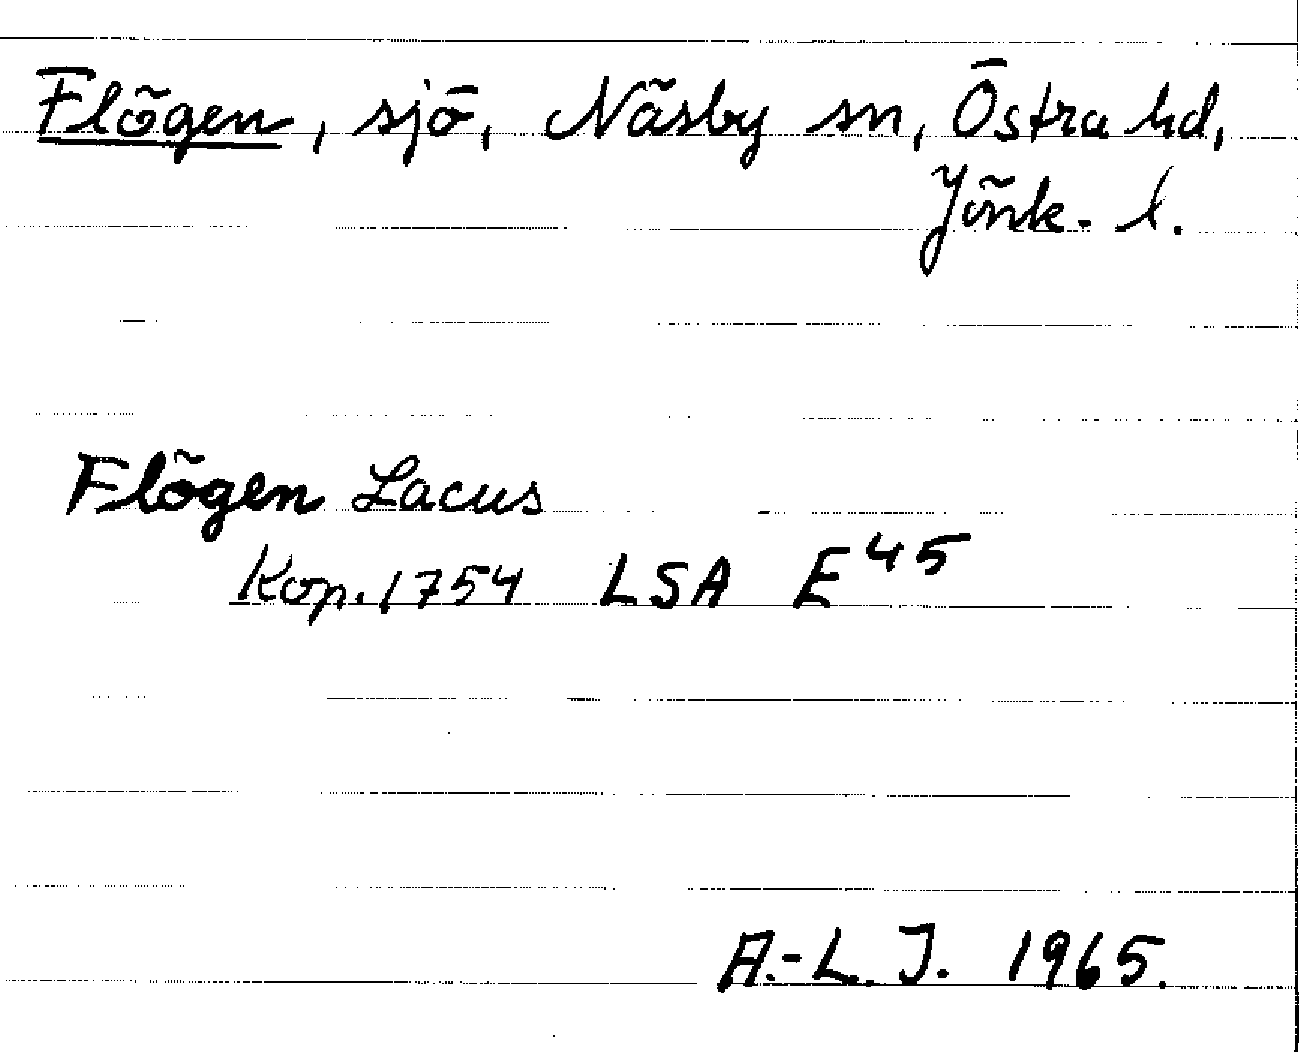 Flögen, sjö, Näsby sn, Östra hd,
Jönk. l.
Flögen Lacus
Kop. 1754 LSA E45
A.-L. J. 1965.